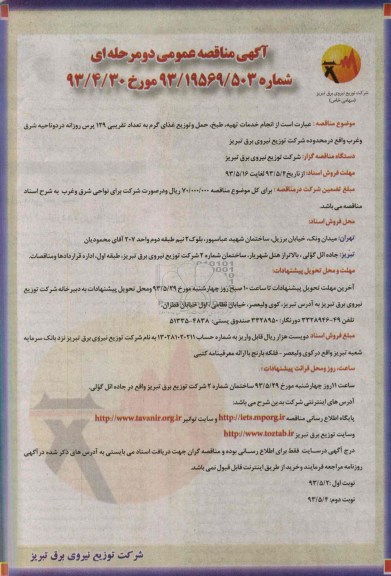 آگهی مناقصه عمومی دو مرحله ای
شماره ۹۳/۱۹۵۶۹/۵۰۳ مورخ ۹۳/۴/۳۰
شرکت توزیع نیروی برق تبریز
(سهامی خاص)
موضوع مناقصه : عبارت است از انجام خدمات تهیه، طبخ، حمل و توزیع غذای گرم به تعداد تقریبی ۱۳۹ پرس روزانه در دو ناحیه شرق
وغرب واقع در محدوده شرکت توزیع نیروی برق تبریز
دستگاه مناقصه گزار: شرکت توزیع نیروی برق تبریز
مهلت فروش اسناد: از تاریخ ۹۳/۵/۴ لغایت ۹۳/۵/۱۶
مبلغ تضمین شرکت در مناقصه : برای کل موضوع مناقصه ۷۰/۰۰۰/۰۰۰ ریال و در صورت شرکت برای نواحی شرق و غرب به شرح اسناد
مناقصه می باشد.
محل فروش اسناد:
تهران: میدان ونک، خیابان برزیل، ساختمان شهید عباسپور، بلوک ۲ نیم طبقه دوم واحد ۲۰۷ آقای محمودیان
تبریز: جاده ائل گؤلی ، بالاتر از هتل شهریار، ساختمان شماره ۲ شرکت توزیع نیروی برق تبریز، طبقه اول، اداره قراردادها و مناقصات.
مهلت و محل تحویل پیشنهادات:
آخرین مهلت تحویل پیشنهادات تا ساعت ۱۰ صبح روز چهارشنبه مورخ ۹۳/۵/۲۹ و محل تحویل پیشنهادات به دبیرخانه شرکت توزیع
نیروی برق تبریز به آدرس تبریز، کوی ولیعصر، خیابان نظامی، اول خیابان قطران
تلفن ۴۹-۳۳۲۸۹۴۶ دورنگار: ۳۳۲۸۹۵۰ صندوق پستی: ۴۸۳۸-۵۱۳۳۵
مبلغ فروش اسناد دویست هزار ریال قابل واریز به شماره حساب ۱۳۰۲۸۱۰۲۰۳۱۱ به نام شرکت توزیع نیروی برق تبریز نزد بانک سرمایه
شعبه تبریز واقع در کوی ولیعصر - فلکه بارنج با ارائه معرفینامه کتبی
ساعت، روز و محل قرائت پیشنهادات:
ساعت ۱۱ روز چهارشنبه مورخ ۹۳/۵/۲۹ ساختمان شماره ۲ شرکت توزیع نیروی برق تبریز واقع در جاده ائل گؤلی.
آدرس های اینترنتی شرکت بدین شرح می باشد:
پایگاه اطلاع رسانی مناقصه http://iets.mporg.ir و سایت توانیر http://www.tavanir.org.ir
وسایت توزیع برق تبریز http://www.toztab.ir
درج آگهی در سایت فقط برای اطلاع رسانی بوده و مناقصه گران جهت دریافت اسناد می بایستی به آدرس های ذکر شده در آگهی
روزنامه مراجعه فرمایند و خرید از طریق اینترنت قابل قبول نمی باشد.
نوبت اول: ۹۳/۵/۲
نوبت دوم: ۹۳/۵/۴
شرکت توزیع نیروی برق تبریز